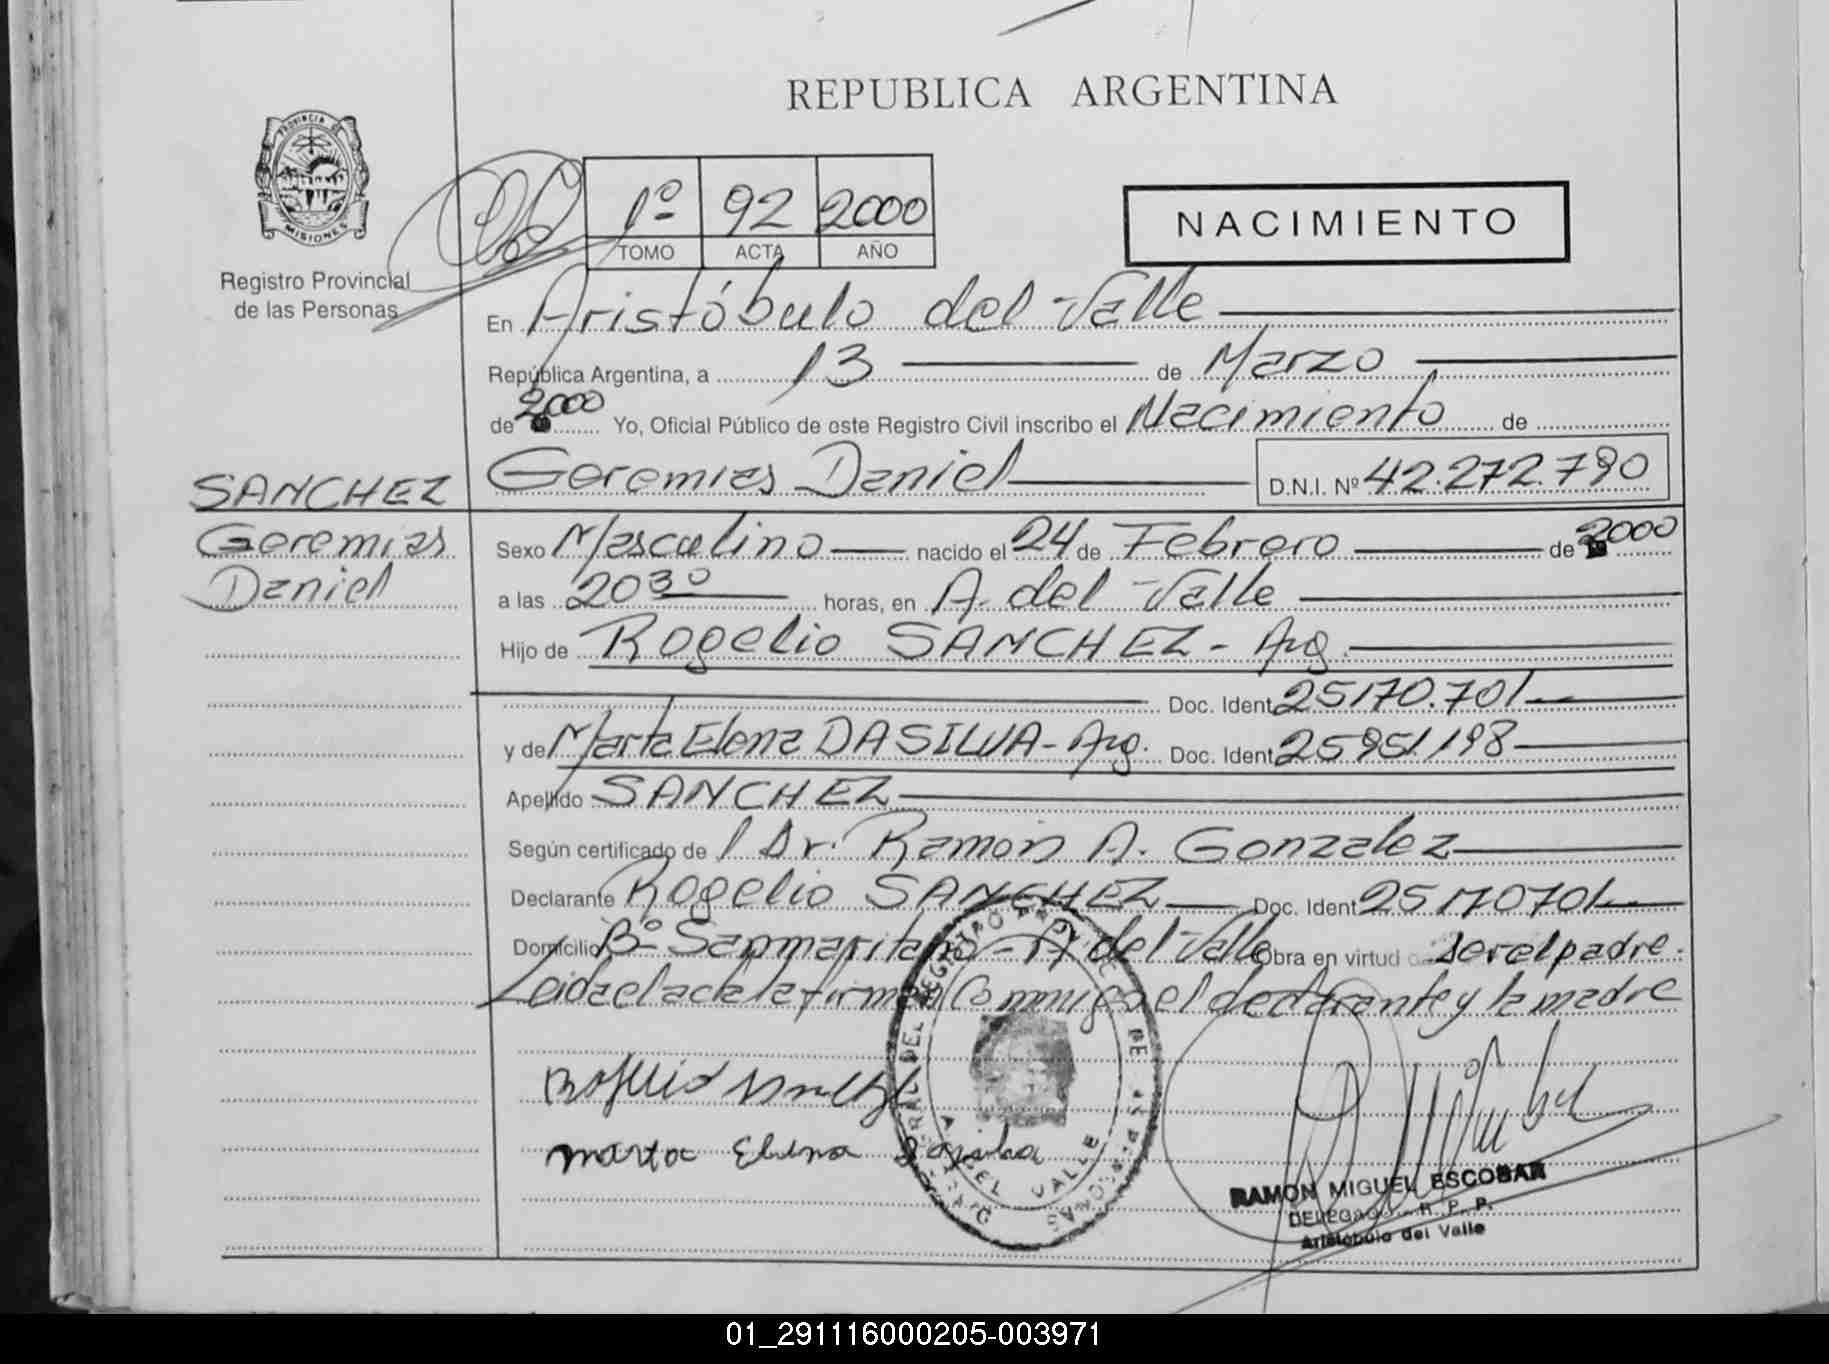 REPUBLICA ARGENTINA
PROVINCIA DE
MISIONES
Registro Provincial
de las Personas
1º 92 2000
TOMO ACTA AÑO
NACIMIENTO
En Aristóbulo del Valle
República Argentina, a 13 de Marzo
de 2000 Yo, Oficial Público de este Registro Civil inscribo el Nacimiento de
SANCHEZ
Geremias
Daniel
Geremias Daniel D.N.I. Nº 42.272.790
Sexo Masculino nacido el 24 de Febrero de 2000
a las 20 30 horas, en A. del Valle
Hijo de Rogelio SANCHEZ - Arg.
Doc. Ident. 25170.701
y de Marta Elena DA SILVA - Arg. Doc. Ident. 25951.198
Apellido SANCHEZ
Según certificado de l Dr. Ramón A. Gonzalez
Declarante Rogelio SANCHEZ Doc. Ident. 25170701
Domicilio Bº Sanmaritano - A. del Valle Obra en virtud ser el padre.
Leida el acta la firma Conmigo el declarante y la madre
Marta Elena Dasilva
A. DEL VALLE
RAMON MIGUEL ESCOBAR
DELEGADO R. P. P.
Aristóbulo del Valle
01_291116000205-003971